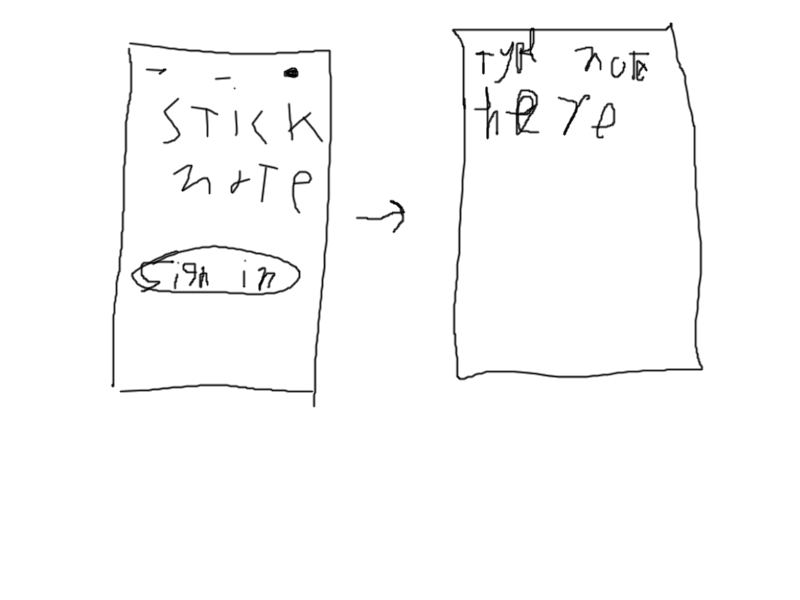 STICK
note
Sign in
type note
here